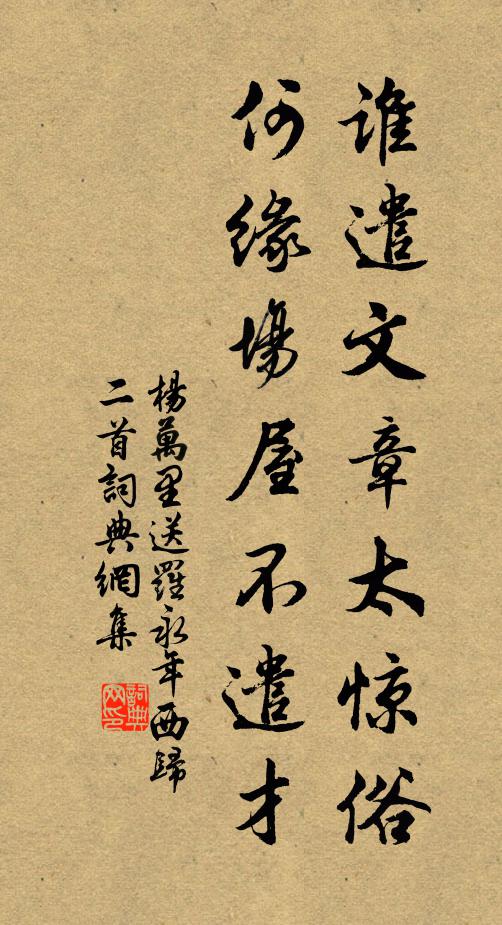 谁遣文章太惊俗
何緣場屋不遣才
楊萬里送羅永年西歸
二首詞典網集
詞典网印